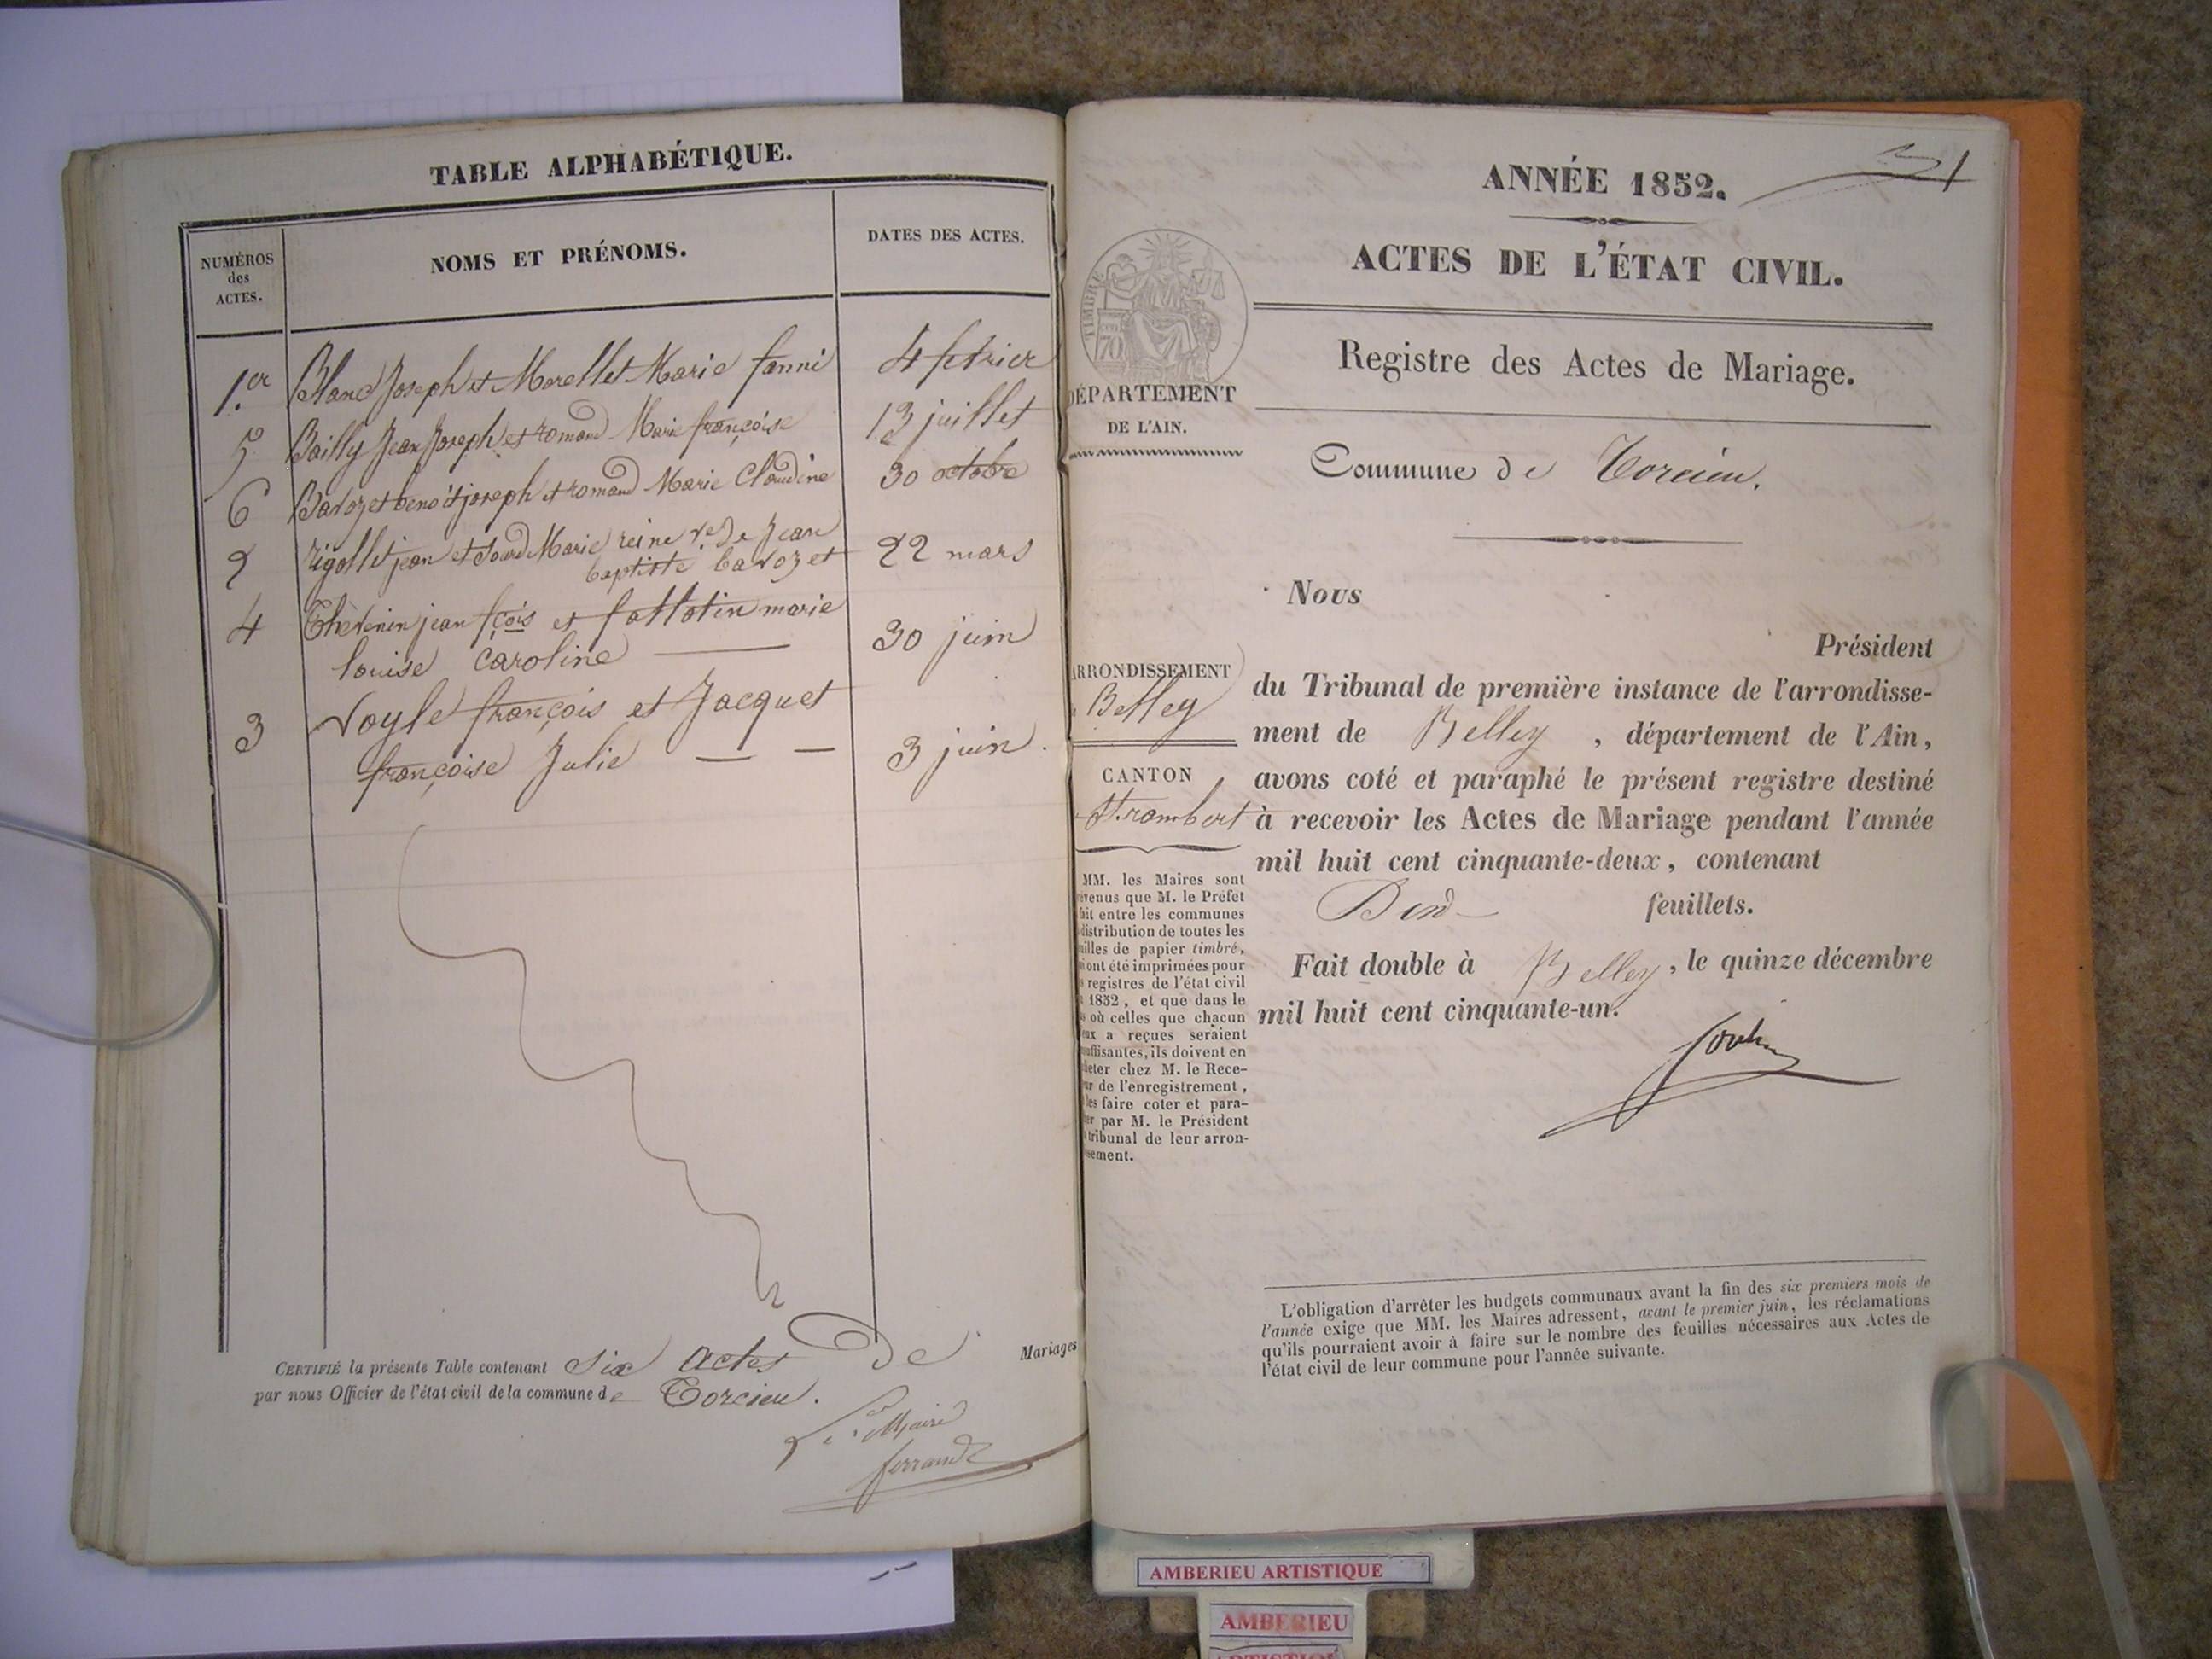 TABLE ALPHABÉTIQUE.
NUMÉROS
des
ACTES.
NOMS ET PRÉNOMS.
DATES DES ACTES.
1.er Blanc Joseph et Morellet Marie fanni 4 fevrier
5 Bailly Jean Joseph et romand Marie françoise 13 juillet
6 Bavozet benoit joseph et romand Marie Claudine 30 octobre
2 rigollet jean et Sourd Marie reine ve de Jean
baptiste bavozet 22 mars
4 Thévenin jean fçois et fattotin marie
louise caroline 30 juin
3 Voyle françois et Jacquet
françoise Julie 3 juin.
CERTIFIÉ la présente Table contenant six actes de Mariages
par nous Officier de l'état civil de la commune de Torcieu.
Le Maire
ferrand
ANNÉE 1852.
1
ACTES DE L'ÉTAT CIVIL.
TIMBRE
70
Registre des Actes de Mariage.
DÉPARTEMENT
DE L'AIN.
Commune de Torcieu.
Nous
Président
du Tribunal de première instance de l'arrondisse-
ment de Belley, département de l'Ain,
avons coté et paraphé le présent registre destiné
à recevoir les Actes de Mariage pendant l'année
mil huit cent cinquante-deux, contenant
feuillets.
Fait double à Belley, le quinze décembre
mil huit cent cinquante-un.
ARRONDISSEMENT
Belley
CANTON
St. rambert
MM. les Maires sont
évenus que M. le Préfet
fait entre les communes
distribution de toutes les
uilles de papier timbré,
ont été imprimées pour
s registres de l'état civil
1852, et que dans le
s où celles que chacun
eux a reçues seraient
suffisantes, ils doivent en
heter chez M. le Rece-
ur de l'enregistrement,
les faire coter et para-
er par M. le Président
tribunal de leur arron-
ssement.
L'obligation d'arrêter les budgets communaux avant la fin des six premiers mois de
l'année exige que MM. les Maires adressent, avant le premier juin, les réclamations
qu'ils pourraient avoir à faire sur le nombre des feuilles nécessaires aux Actes de
l'état civil de leur commune pour l'année suivante.
AMBERIEU ARTISTIQUE
AMBERIEU
ARTISTIQUE